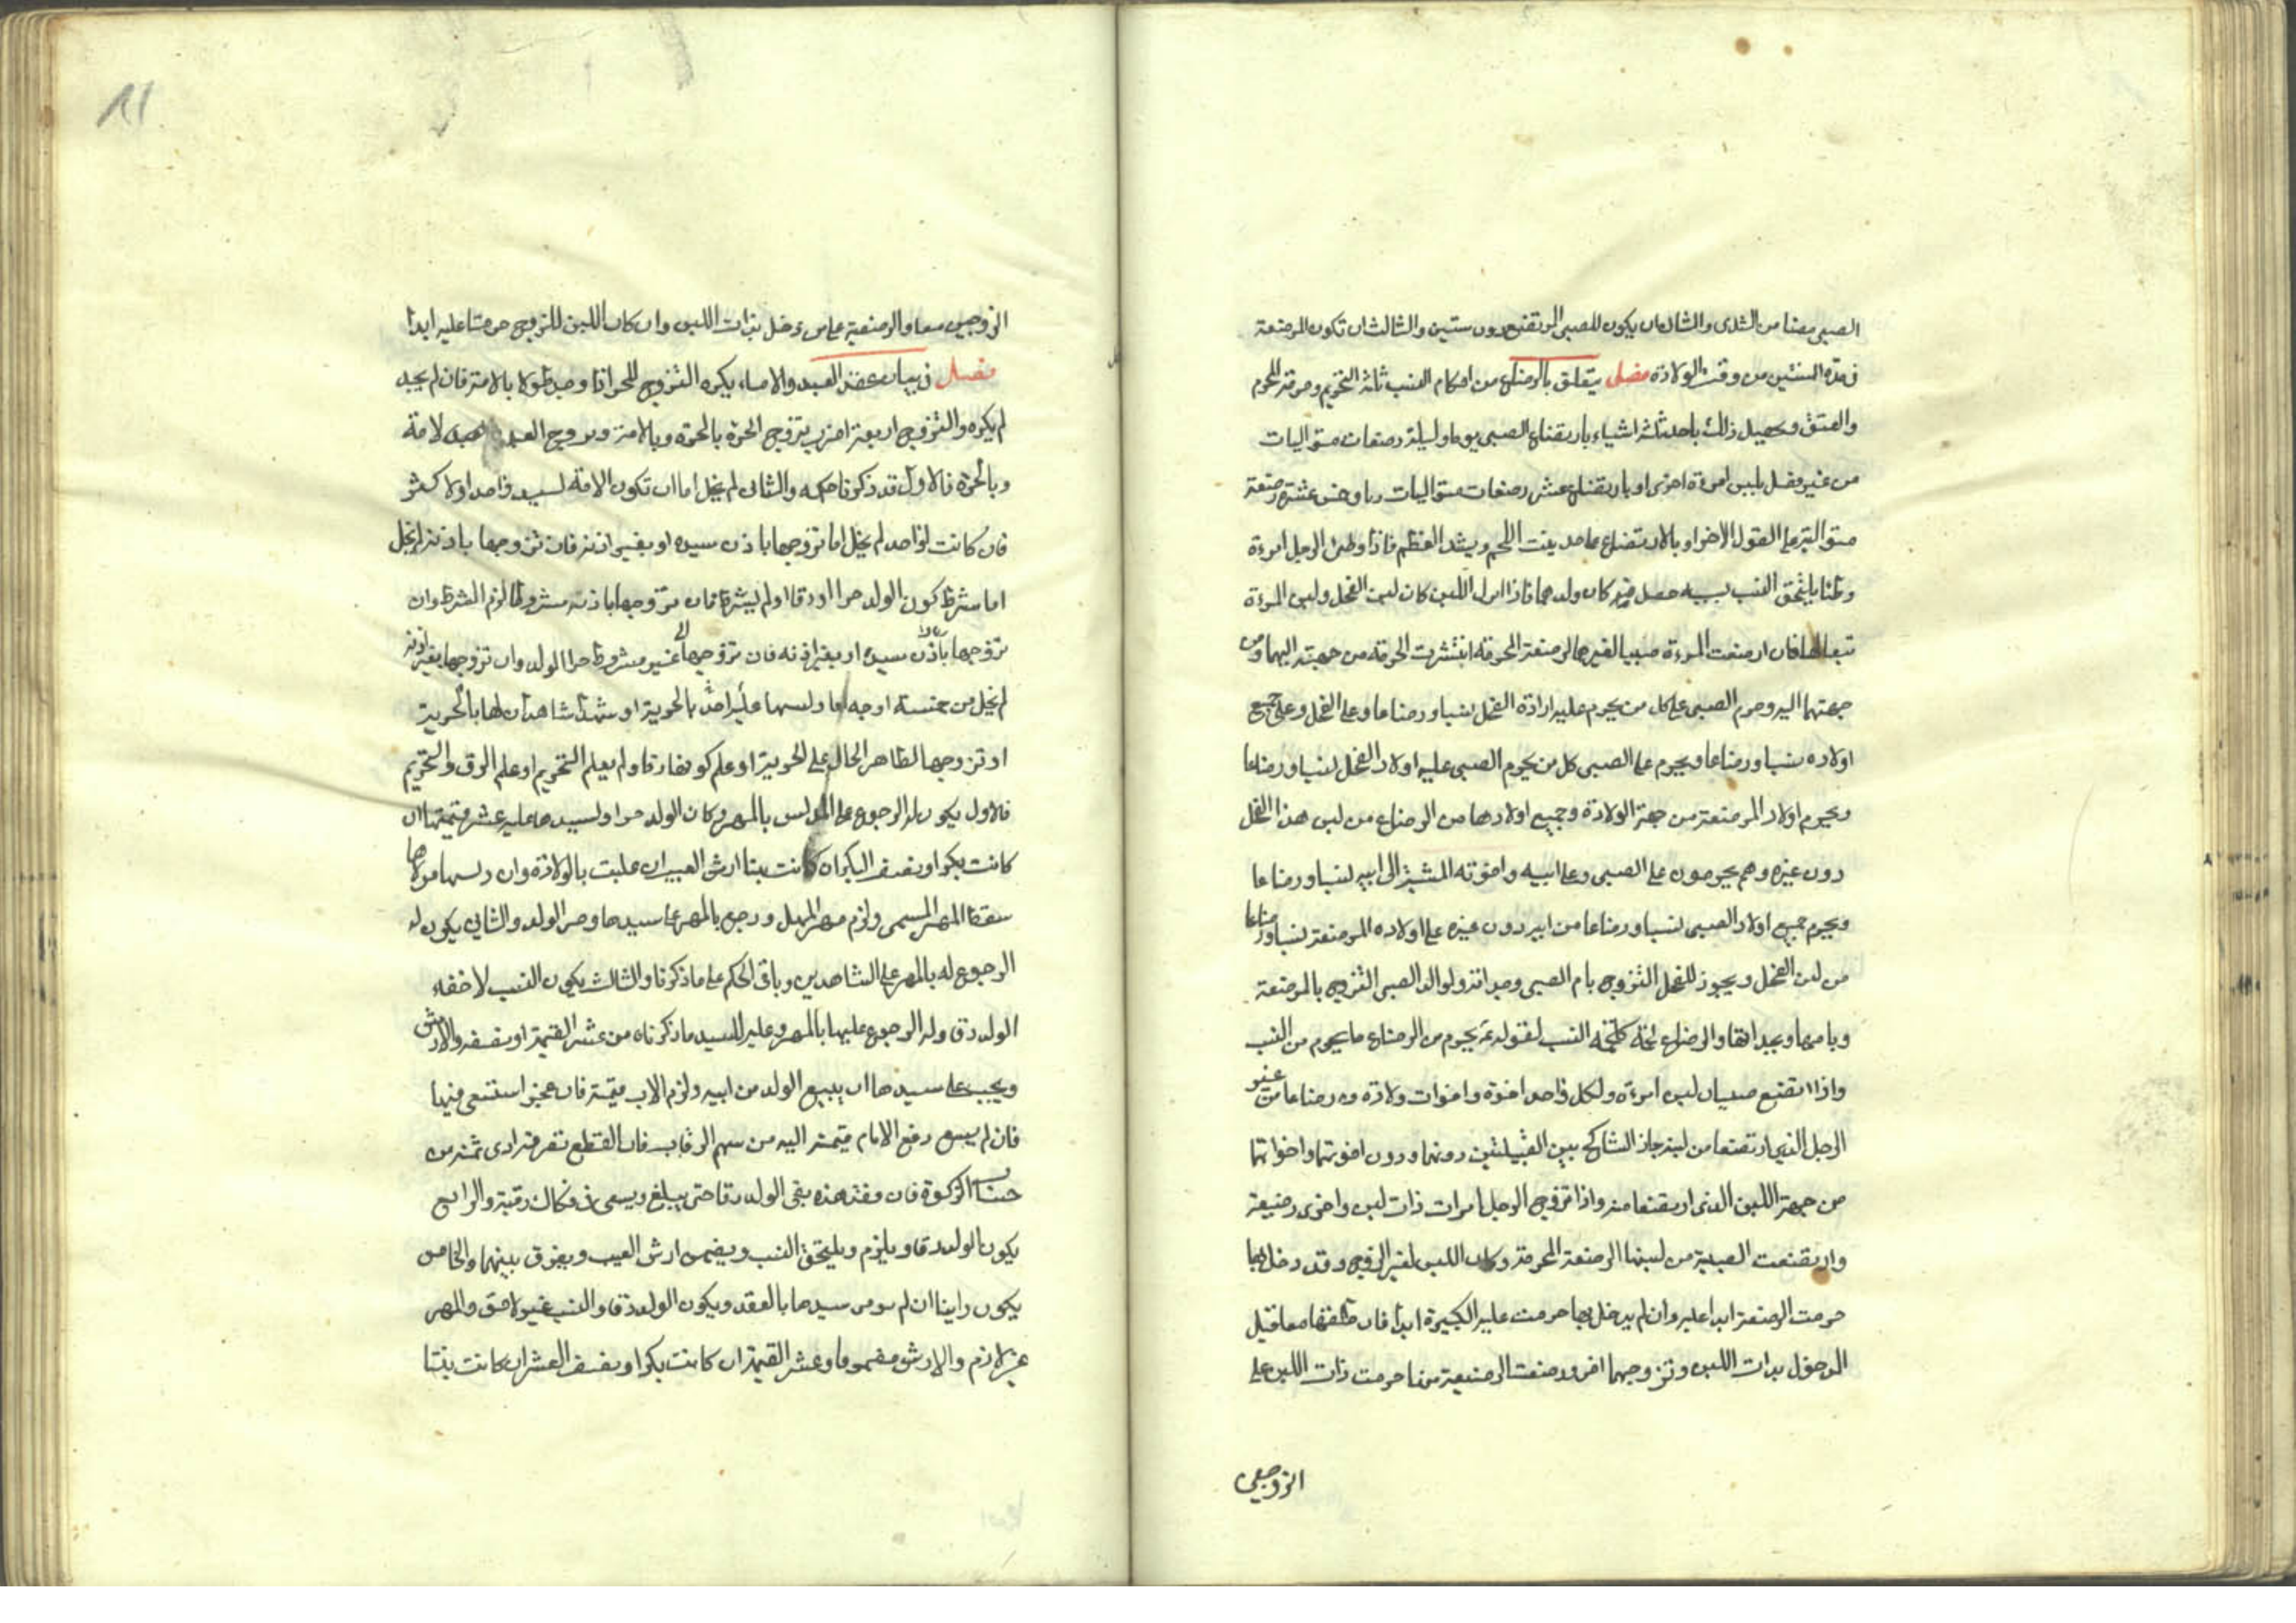 الصبي مصا من الثدي والثاني ان يكون للصبي المرتضع دون سنتين والثالث ان تكون المرضعة
في مدة السنتين من وقت الولادة فصل يتعلق بالرضاع من احكام النسب ثلثة التحريم وحرمة المحرم
والعتق ويحصل ذلك باحد ثلثة اشياء بارتضاع الصبي يوما وليلة رضعات متواليات
من غير فصل بلبن امرءة اخرى او بارتضاع عشر رضعات متواليات او خمس عشرة رضعة
متوالية على القول الاخر او بالارتضاع ما حد ينبت اللحم ويشد العظم فاذا وطئ الرجل امرءة
وطئا يلتحق النسب بسببه حصل منه كان ولدهما فاذا انزل اللبن كان لبن الفحل ولبن المرءة
تبعا لها فان ارضعت المرءة صبيا لغيرها الرضعة المحرمة انتشرت الحرمة من جهته اليهما ومن
جهتهما اليه وحرم الصبي على كل من يحرم عليه اولاد الفحل نسبا ورضاعا وعلى الفحل وعلى جميع
اولاده نسبا ورضاعا ويحرم على الصبي كل من يحرم الصبي عليه اولاد الفحل نسبا ورضاعا
ويحرم اولاد المرضعة من جهة الولادة وجميع اولادها من الرضاع من لبن هذا الفحل
دون غيره وهم يحرمون على الصبي وعلى ابيه واخوته المنتسبة الى ابيه نسبا ورضاعا
ويحرم جميع اولاد الصبي نسبا ورضاعا من ابيه دون غيره على اولاده المرضعة نسبا ورضاعا
من لبن الفحل ويجوز للفحل التزوج بام الصبي وجداته ولوالد الصبي التزوج بالمرضعة
وبامها وبجداتها والرضاع لحمة كلحمة النسب لقوله يحرم من الرضاع ما يحرم من النسب
واذا ارتضع صبيان لبن امرءة ولكل واحد اخوة واخوات ولادة ورضاعا من غير
الرجل الذي ارتضعا من لبنه جاز التناكح بين القبيلتين دونهما ودون اخوتهما واخواتهما
من جهة اللبن الذي ارتضعا منه واذا تزوج الرجل امرات ذات لبن واخرى رضيعة
وارتضعت الصبية من لبنها الرضعة المحرمة وكان اللبن لغير الزوج وقد دخل بها
حرمت الرضعة ابدا عليه وان لم يدخل بها حرمت عليه الكبيرة ابدا فان طلقها معا قبل
الدخول بذات اللبن وتزوجهما اخر ورضعت الرضيعة منها حرمت ذات اللبن على
الزوجين
الزوجين معا والرضيعة على من دخل بذات اللبن وان كان اللبن للزوج حرمتا عليه ابدا
فصل في بيان عقد العبيد والاماء يكره التزوج للحر اذا وجد طولا بالامة فان لم يجد
لم يكره والتزوج اربعة اضرب تزوج الحرة بالحرة وبالامة وتزوج العبد لامة
وبالحرة فالاول قد ذكرنا حكمه والثاني لم يخل اما ان تكون الامة لسيد واحد او لاكثر
فان كانت لواحد لم يخل اما تزوجها باذن سيده او بغير اذنه فان تزوجها باذنه لم يخل
اما شرط كون الولد حرا او رقا او لم يشرط فان تزوجها باذنه مشروطا لزم الشرط وان
تزوجها باذن سيده او بغير اذنه فان تزوجها غير مشروط حرا الولد وان تزوجها بغير اذنه
لم يخل من خمسة اوجه اما دلسها عليه احد بالحرية او شهد شاهدان لها بالحرية
او تزوجها لظاهر الحال على الحرية او علم كونها رقا ولم يعلم التحريم او علم الرق والتحريم
فالاول يكون له الرجوع على المدلس بالمهر وكان الولد حرا ولسيدها عليه عشر قيمتها ان
كانت بكرا ونصف العشر ان كانت ثيبا وارش العيب ان عليت بالولادة وان دلسها مولاها
سقط المهر المسمى ولزم مهر المثل ورجع بالمهر على سيدها وحر الولد والثاني يكون له
الرجوع له بالمهر على الشاهدين وباقي الحكم على ما ذكرنا والثالث يكون النسب لاحقا
الولد رق وله الرجوع عليها بالمهر وعليه للسيد ما ذكرناه من عشر القيمة او نصفه والارش
ويجب على سيدها ان يبيع الولد من ابيه ولزم الاب قيمته فان عجز استسعى فيها
فان لم يسع دفع الامام قيمته اليه من سهم الرقاب فان انقطع تصرفه ادى ثمنه من
حساب الزكوة فان فقد هذه بقى الولد رقا حتى يبلغ ويسعى في فكاك رقبته والرابع
يكون الولد رقا ويلزم ويلتحق النسب ويضمن ارش العيب ويفرق بينهما والخامس
يكون زانيا ان لم سيدها بالعقد ويكون الولد رقا والنسب غير لاحق والمهر
غير لازم والارش مضموما وعشر القيمة ان كانت بكرا ونصف العشر ان كانت ثيبا